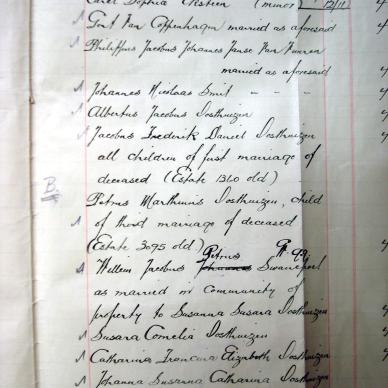 Carel Sophia (minor) 12/11
Gert Van Oppenhagen married as aforesaid
Philippus Jacobus Johannes Janse Van Vuuren
married as aforesaid
Johannes Nicolaas Smit - - -
Albertus Jacobus Oosthuizen
Jacobus Frederik Daniel Oosthuizen
all children of first marriage of
deceased (Estate 1360 old)
B.
Petrus Marthinus Oosthuizen, child
of third marriage of deceased
(Estate 3095 old)
Petrus
Willem Jacobus Johannes Swanepoel
as married in community of
property to Susanna Susara Oosthuizen
Susara Cornelia Oosthuizen
Catharina Francina Elizabeth Oosthuizen
Johanna Susanna Catharina Oosthuizen